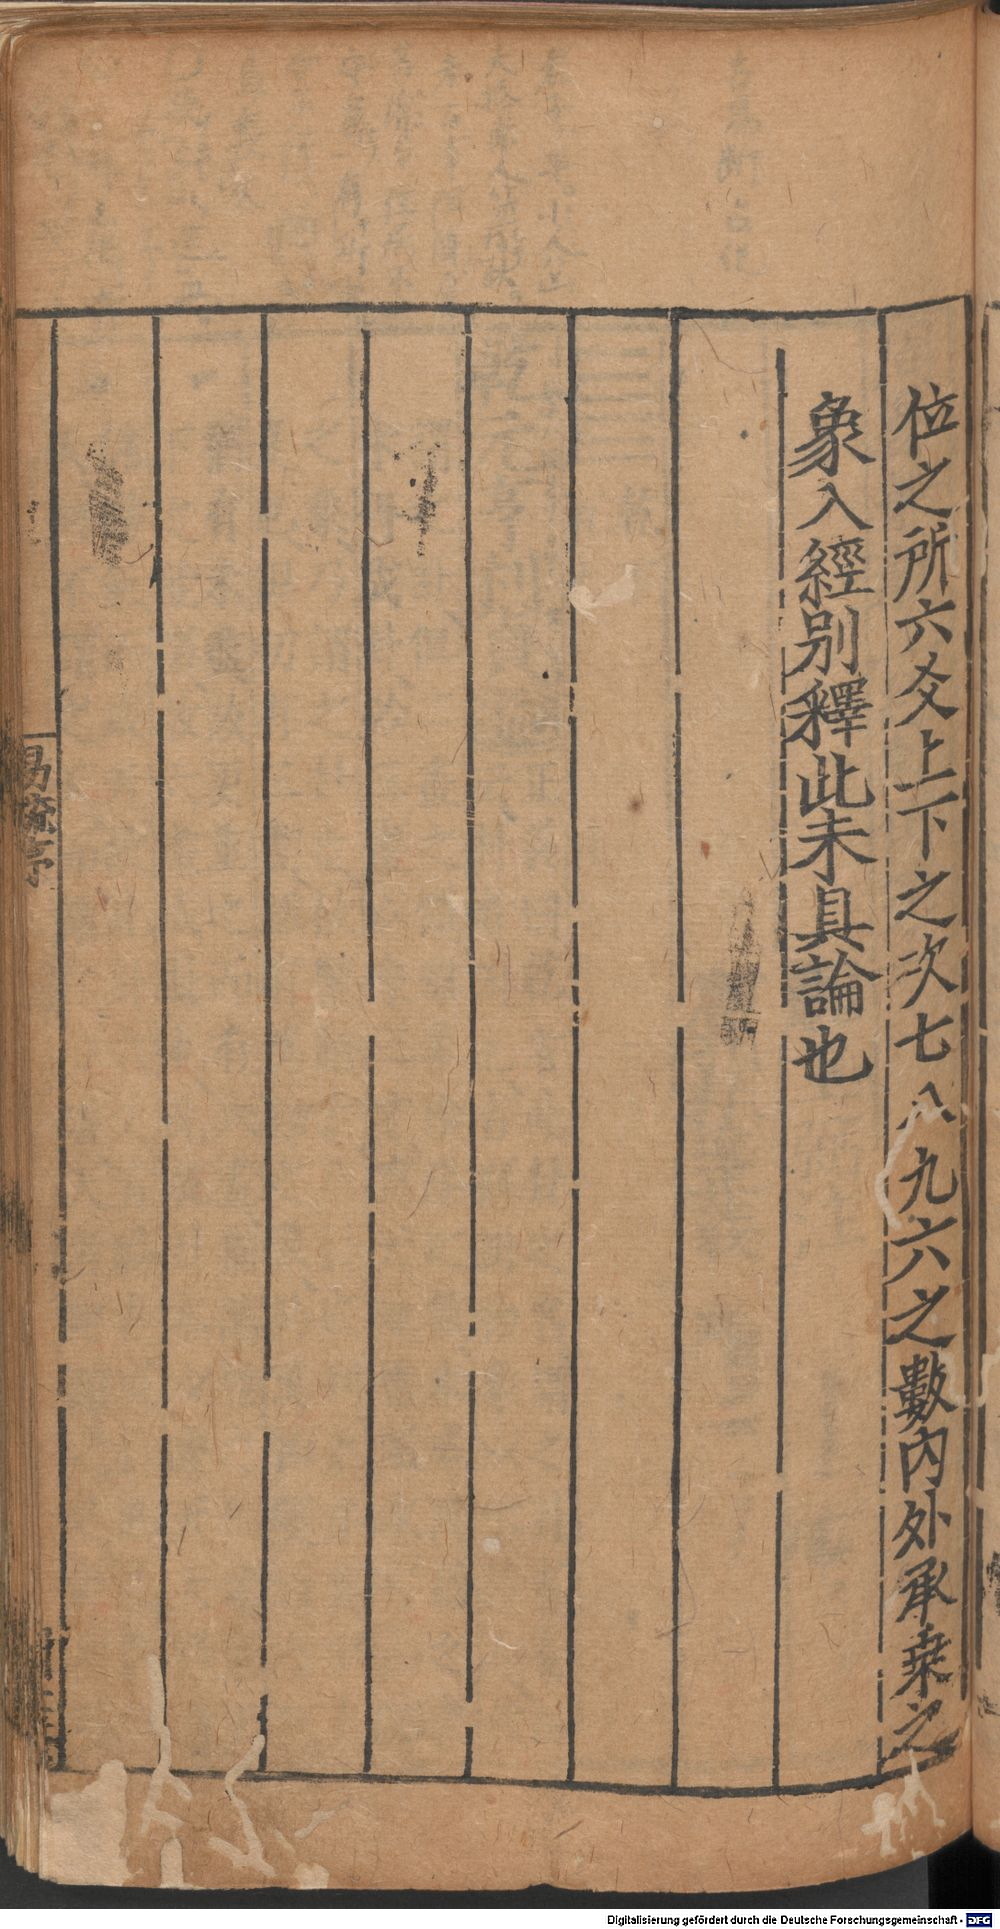 位之所六爻上下之次七八九六之數内外承乗之
象入經别釋此未具論也
易疏序
Digitalisierung gefördert durch die Deutsche Forschungsgemeinschaft - DFG